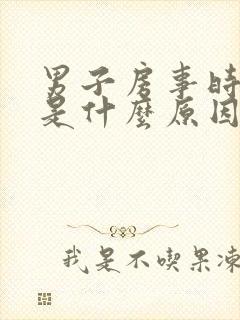 男子房事時
是什麼原因
我是不喫果凍